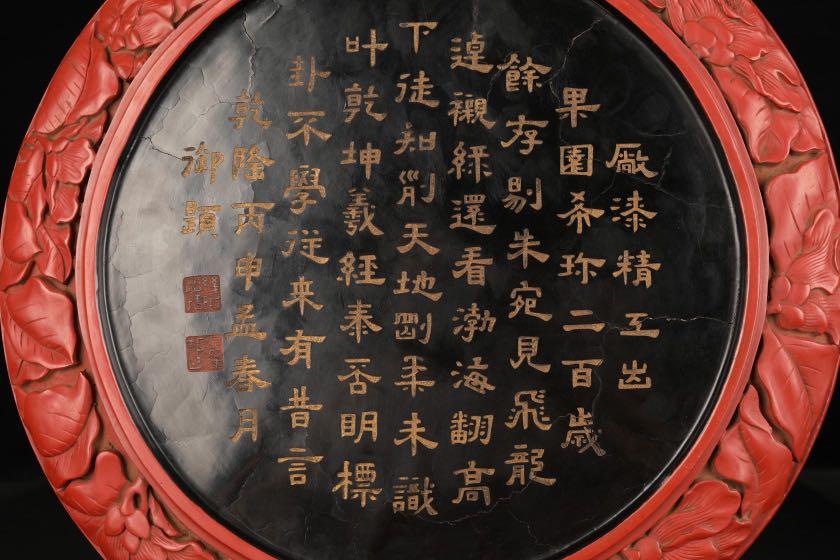 厰漆精工出
果園希珎二百歲
餘存剔朱宛見飛龍
逴襯綠還看渤海翻高
下徒知別天地剛柔未識
叶乾坤羲經泰否明標
卦不學從来有昔言
乾隆丙申孟春月
御題